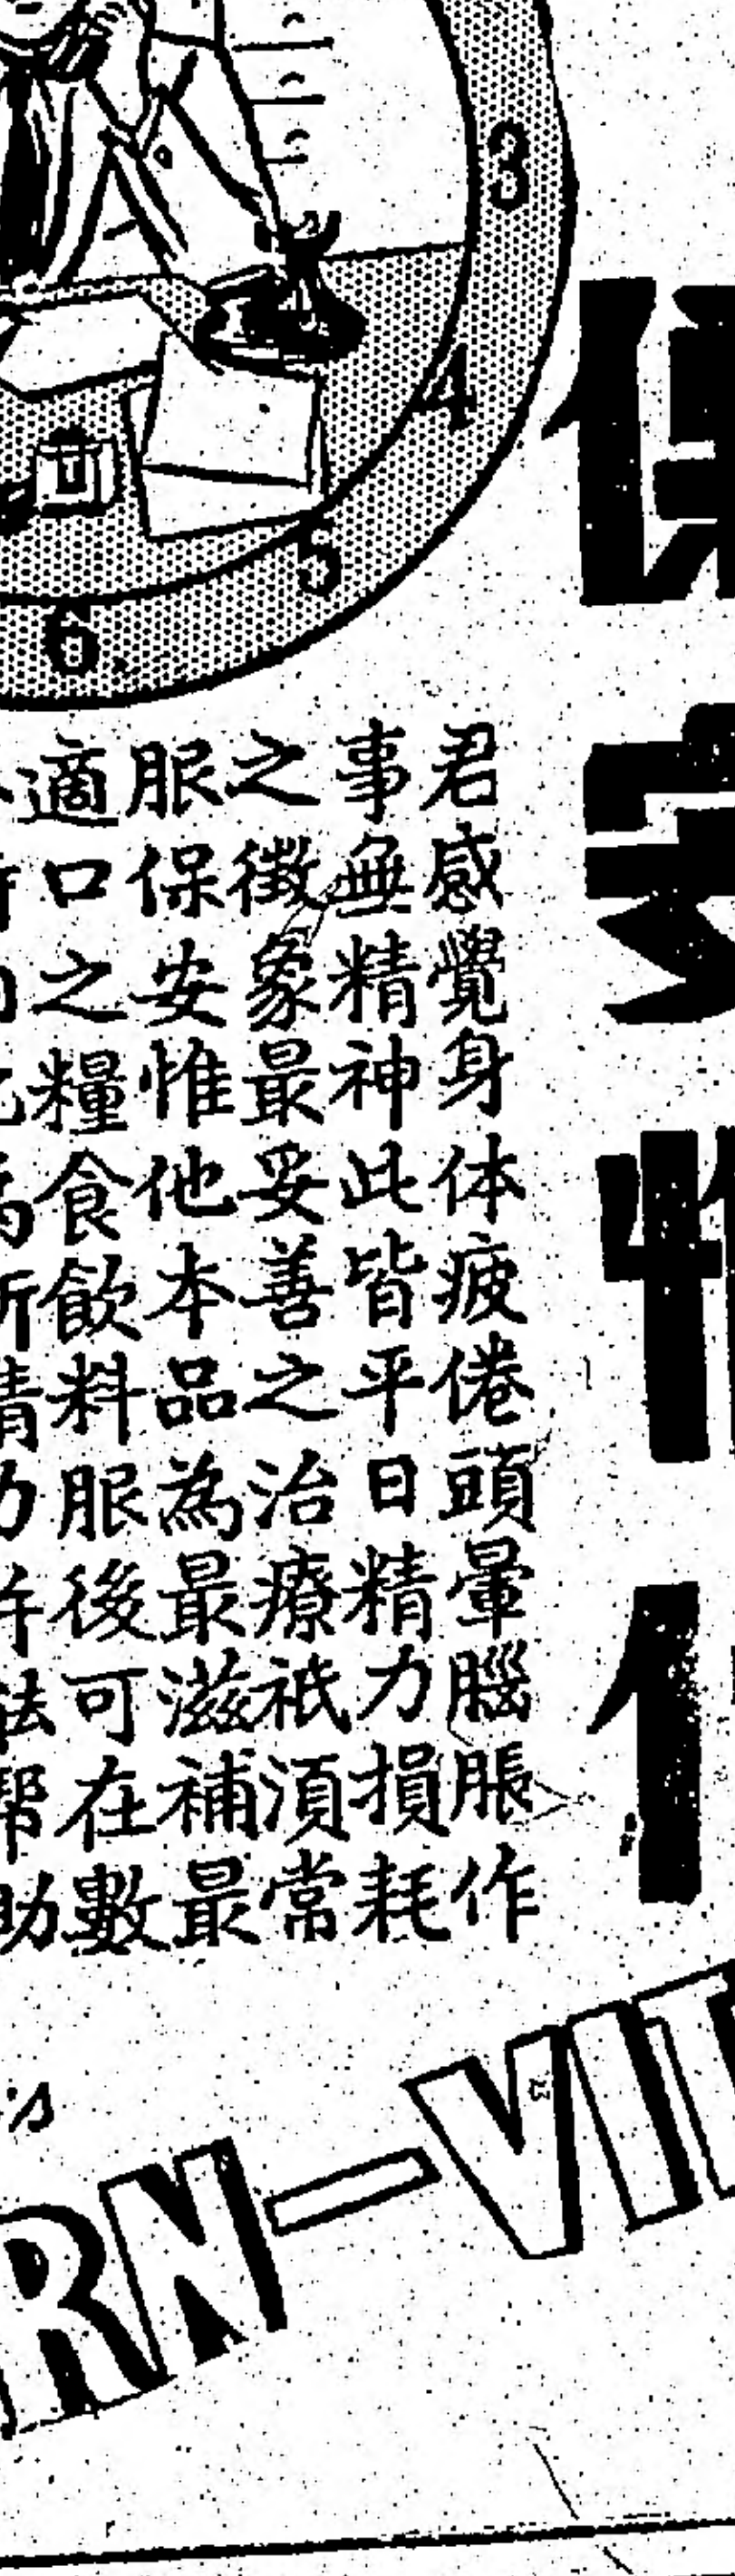 保安惟他
君感覺身体疲倦頭暈腦脹作
事無精神此皆平日精力損耗
之徵象最妥善之治療祇須常
服保安惟他本品為最滋補最
適口之糧食飲料服後可在數
助
3
4
5
6
's
RN-VIT